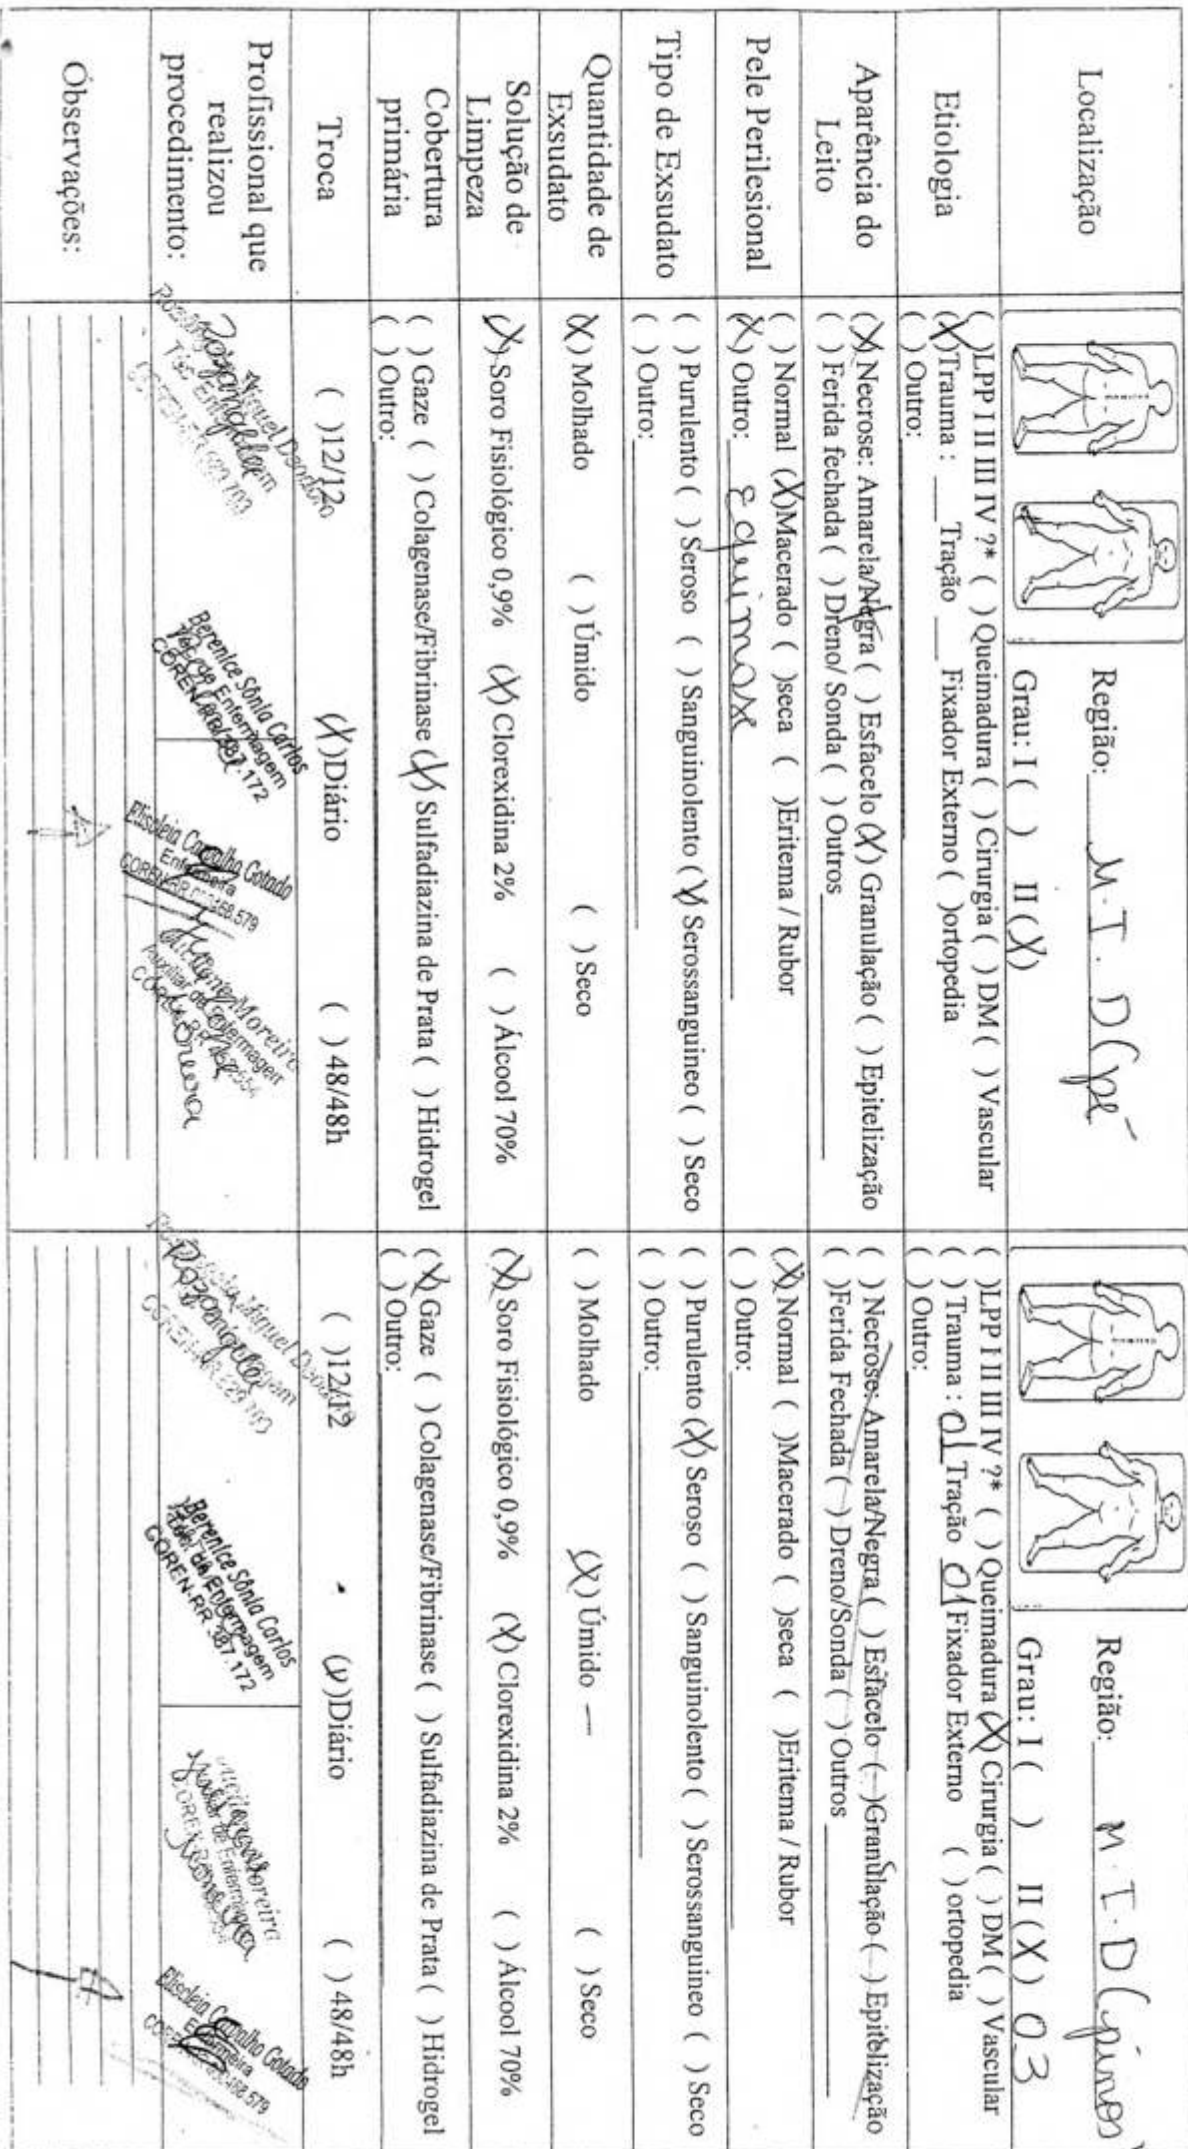 Localização
Região: M.I.D (pé
Grau: I ( ) II (X)
Região: M.I.D (pinos)
Grau: I ( ) II (X) 03
Etiologia
( )LPP I II III IV ?* ( ) Queimadura ( ) Cirurgia ( ) DM ( ) Vascular
(X)Trauma : ___Tração ___ Fixador Externo ( )ortopedia
( ) Outro:
( )LPP I II III IV ?* ( ) Queimadura (X) Cirurgia ( ) DM ( ) Vascular
( ) Trauma : 01 Tração 01 Fixador Externo ( ) ortopedia
( ) Outro:
Aparência do
Leito
(X) Necrose: Amarela/Negra ( ) Esfacelo (X) Granulação ( ) Epitelização
( ) Ferida fechada ( ) Dreno/ Sonda ( ) Outros
( ) Necrose: Amarela/Negra ( ) Esfacelo ( )Granulação ( ) Epitelização
( )Ferida Fechada ( ) Dreno/Sonda ( ) Outros
Pele Perilesional
( ) Normal (X)Macerado ( )seca ( )Eritema / Rubor
(X) Outro: Equimose
(X) Normal ( )Macerado ( )seca ( )Eritema / Rubor
( ) Outro:
Tipo de Exsudato
( ) Purulento ( ) Seroso ( ) Sanguinolento (X) Serossanguineo ( ) Seco
( ) Outro:
( ) Purulento (X) Seroso ( ) Sanguinolento ( ) Serossanguineo ( ) Seco
( ) Outro:
Quantidade de
Exsudato
(X) Molhado ( ) Úmido ( ) Seco
( ) Molhado (X) Úmido ( ) Seco
Solução de
Limpeza
(X) Soro Fisiológico 0,9% (X) Clorexidina 2% ( ) Álcool 70%
(X) Soro Fisiológico 0,9% (X) Clorexidina 2% ( ) Álcool 70%
Cobertura
primária
( ) Gaze ( ) Colagenase/Fibrinase (X) Sulfadiazina de Prata ( ) Hidrogel
( ) Outro:
(X) Gaze ( ) Colagenase/Fibrinase ( ) Sulfadiazina de Prata ( ) Hidrogel
( ) Outro:
Troca
( )12/12 (X)Diário ( ) 48/48h
( )12/12 (X)Diário ( ) 48/48h
Profissional que
realizou
procedimento:
Berenice Sônia Carlos
de Enfermagem
COREN-RR 387.172
Enfermeira
Moreira
Auxiliar de Enfermagem
Berenice Sônia Carlos
de Enfermagem
COREN-RR 387.172
Moreira
de Enfermagem
Enfermeira
Observações: